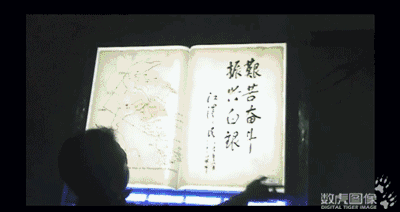 艰苦奋斗
振兴白银
江泽民
数虎图像
DIGITAL TIGER IMAGE